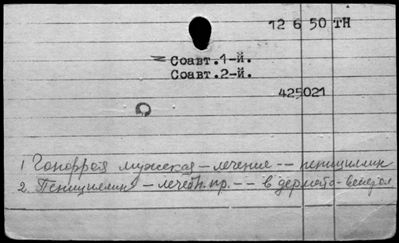 12 6 50 ТН
Соавт.1-й.
Соавт.2-й.
425021
1 Гоноррея мужская - лечение -- пенициллин
2. Пенициллин - лечебн. пр. -- в дермато-венерол